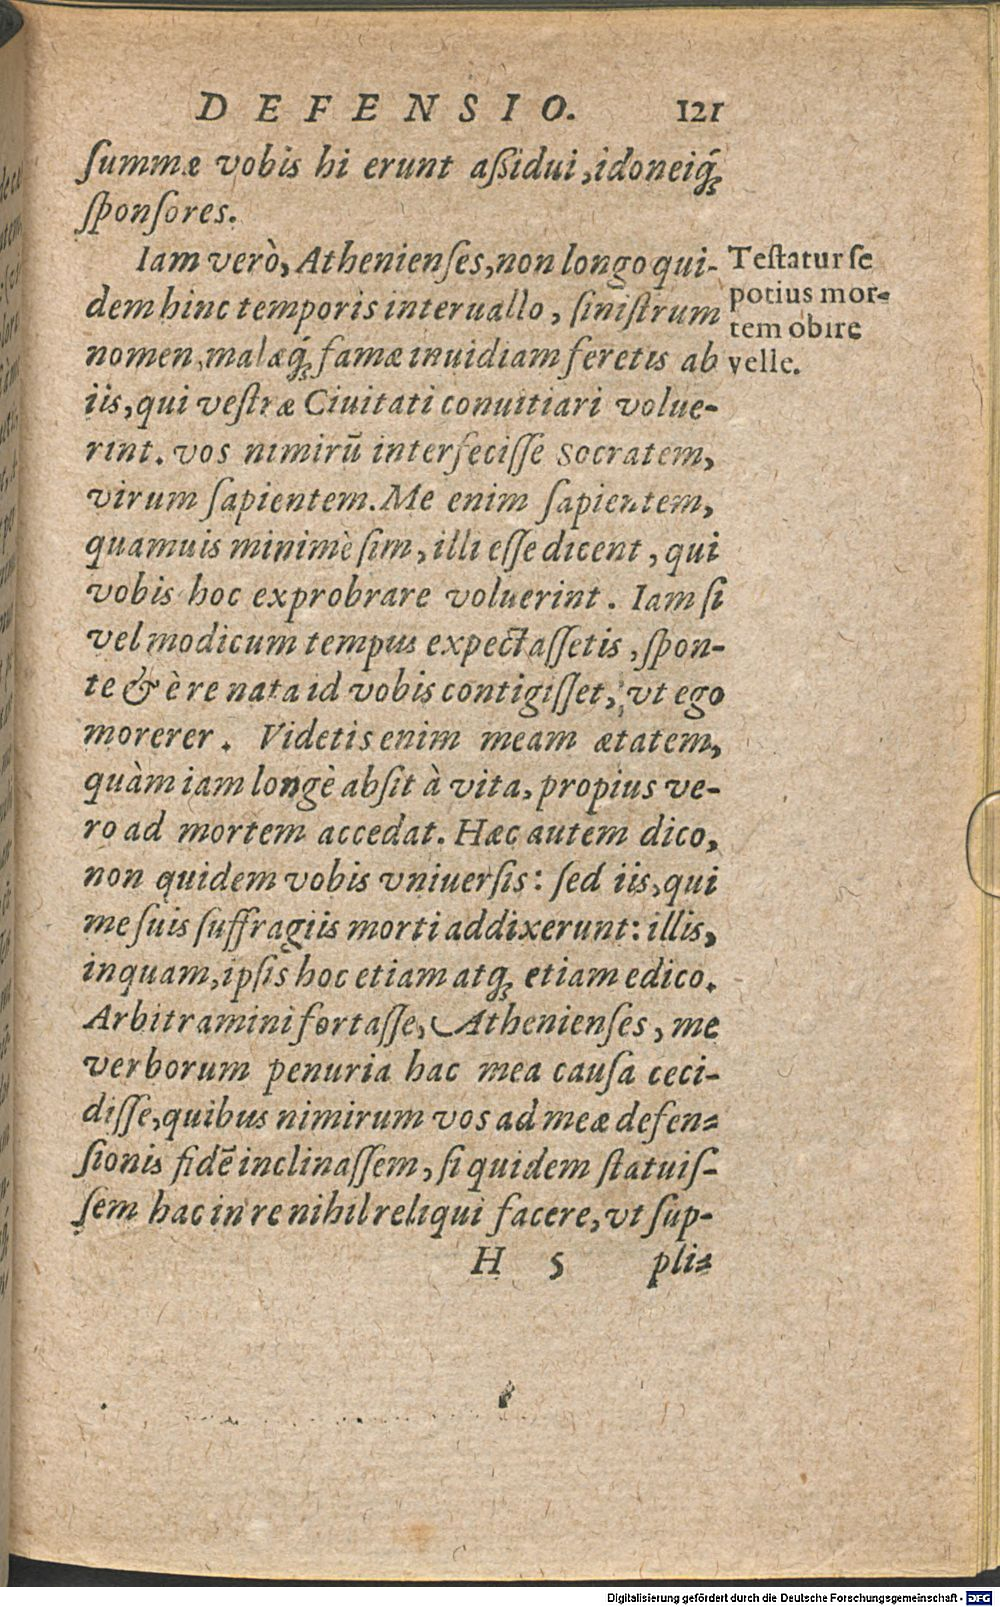 DEFENSIO. 121
ſummæ vobis hi erunt aßidui, idoneiq́;
ſponſores.
Iam verò, Athenienſes, non longo qui-
dem hinc temporis interuallo, ſiniſtrum
nomen, malæq́; famæ inuidiam feretis ab
iis, qui veſtræ Ciuitati conuitiari volue-
rint. vos nimirū interfeciſſe Socratem,
virum ſapientem. Me enim ſapientem,
quamuis minimè ſim, illi eſſe dicent, qui
vobis hoc exprobrare voluerint. Iam ſi
vel modicum tempus expectaſſetis, ſpon-
te & è re nata id vobis contigiſſet, vt ego
morerer. Videtis enim meam ætatem,
quàm iam longè abſit à vita, propius ve-
ro ad mortem accedat. Hæc autem dico,
non quidem vobis vniuerſis: ſed iis, qui
me ſuis ſuffragiis morti addixerunt: illis,
inquam, ipſis hoc etiam atq; etiam edico.
Arbitramini fortaſſe, Athenienſes, me
verborum penuria hac mea cauſa ceci-
diſſe, quibus nimirum vos ad meæ defen-
ſionis fidē inclinaſſem, ſi quidem ſtatuiſ-
ſem hac in re nihil reliqui facere, vt ſup-
H 5 pli-
Teſtatur ſe
potius mor-
tem obire
velle.
Digitalisierung gefördert durch die Deutsche Forschungsgemeinschaft - DFG